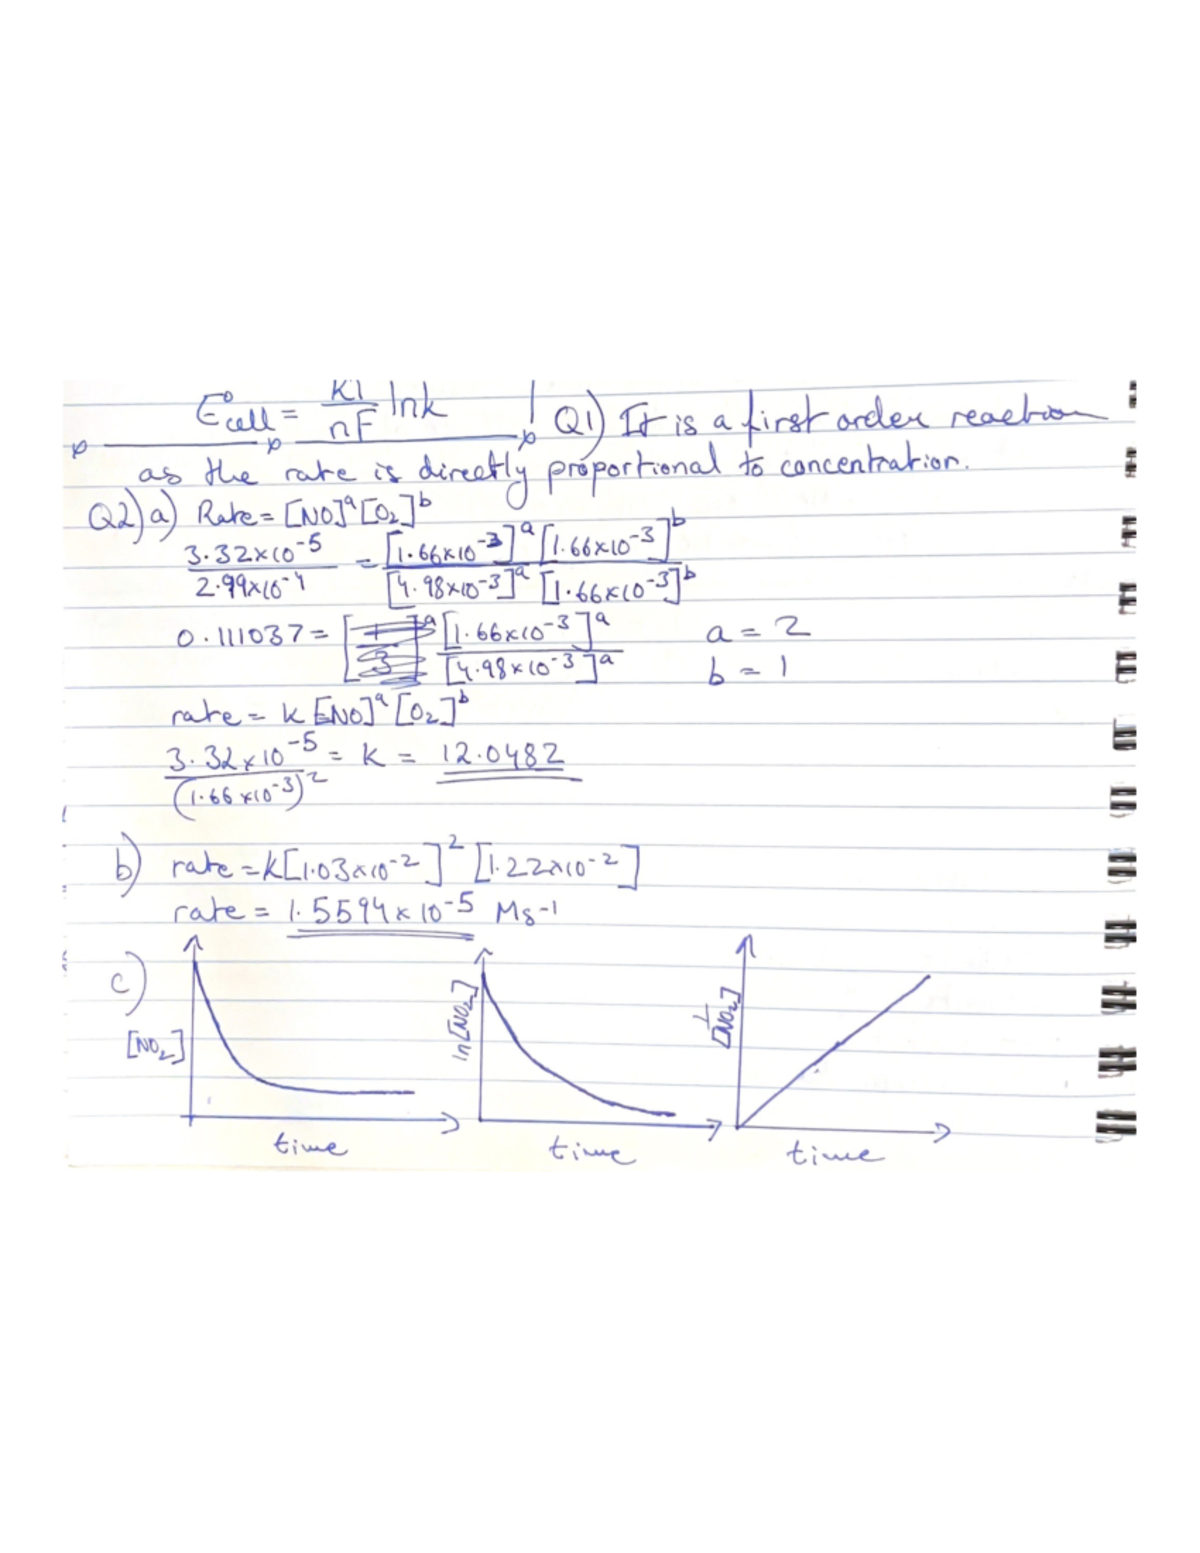 E°cell = RT/nF lnk
Q1) It is a first order reaction
as the rate is directly proportional to concentration.
Q2) a) Rate = [NO]^a [O₂]^b
3.32x10^-5 / 2.99x10^-4 = [1.66x10^-3]^a [1.66x10^-3]^b / [4.98x10^-3]^a [1.66x10^-3]^b
0.111037 = [1.66x10^-3]^a / [4.98x10^-3]^a
a = 2
b = 1
rate = k [NO]^a [O₂]^b
3.32x10^-5 / (1.66x10^-3)^2 = k = 12.0482
b) rate = k[1.03x10^-2]^2 [1.22x10^-2]
rate = 1.5594x10^-5 Ms^-1
c)
[NO₂]
time
ln[NO₂]
time
1/[NO₂]
time